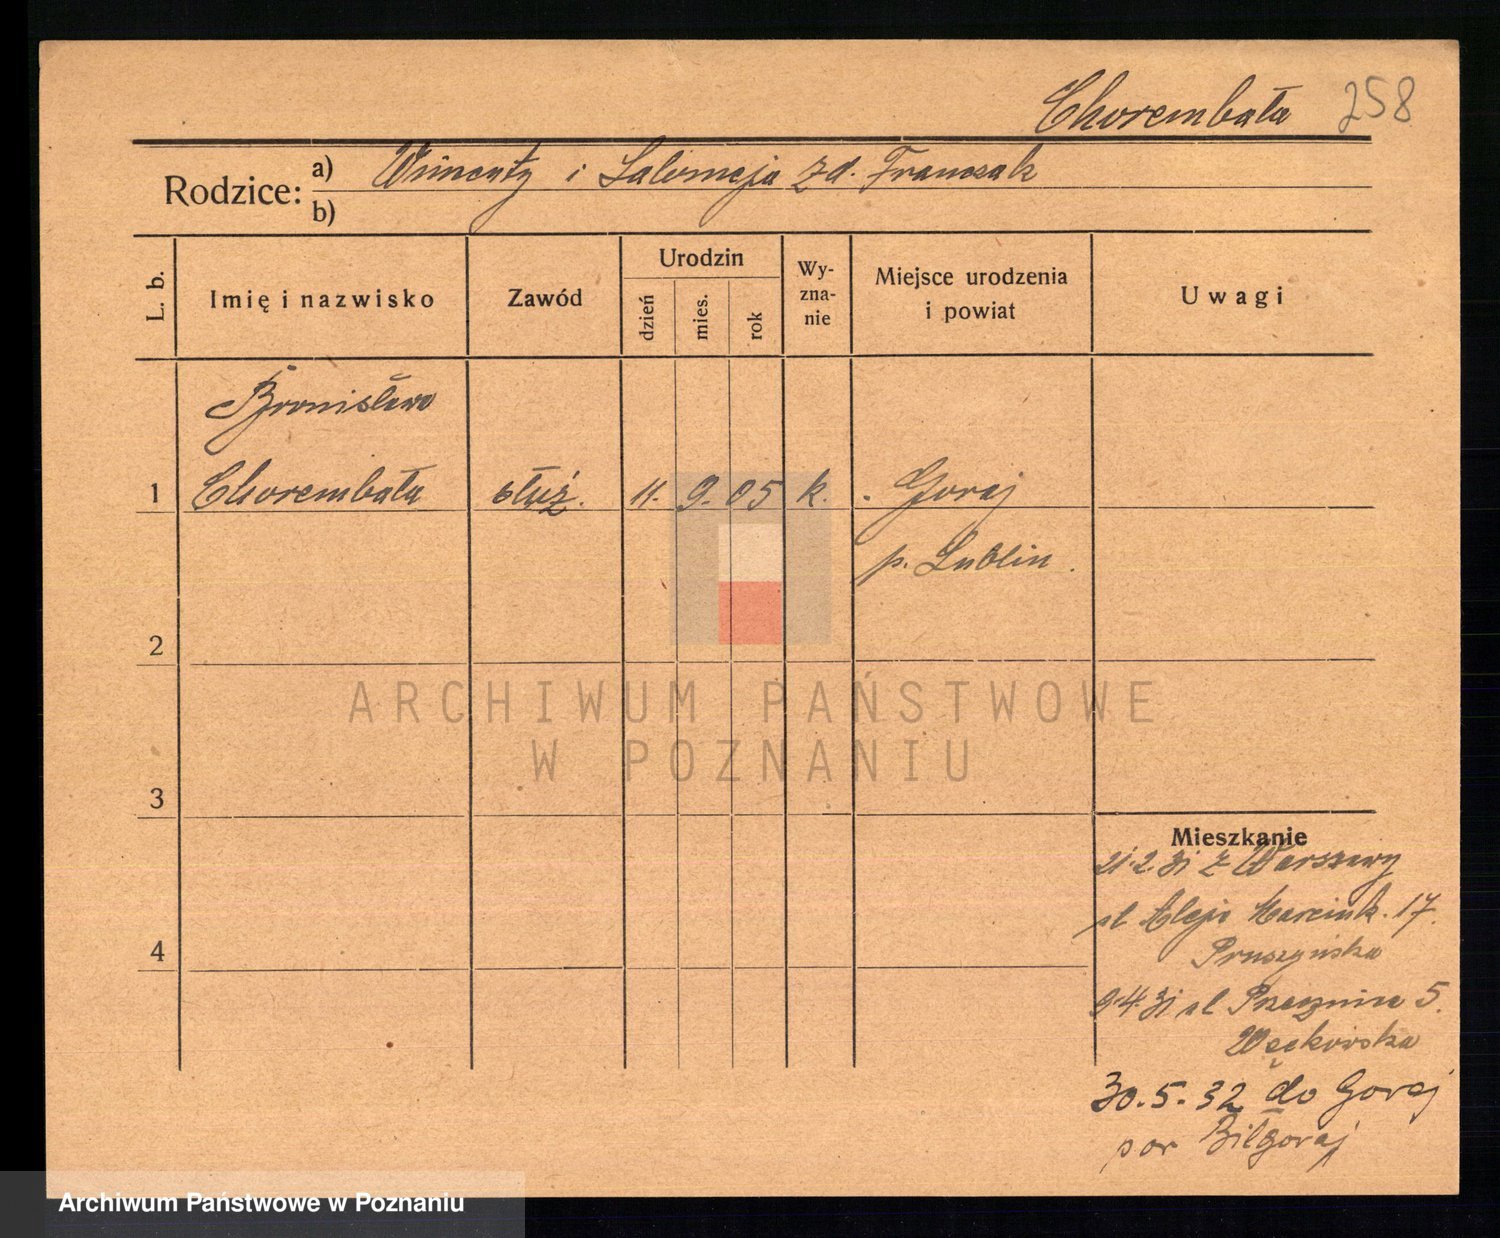 Chorembała 258
Rodzice: a) Wincenty i Salomeja z d. Franczak
b)
L. b.
Imię i nazwisko
Zawód
Urodzin
dzień
mies.
rok
Wy-
zna-
nie
Miejsce urodzenia
i powiat
Uwagi
Bronisława
1 Chorembała służ. 11. 9. 05 k. Goraj
p. Lublin.
2
3
4
ARCHIWUM PAŃSTWOWE
W POZNANIU
Mieszkanie
21.2.31 z Warszawy
ul Aleje Marcink. 17.
Pruszyńska
9.4.31 ul 5.
Węckowska
30.5.32 do Goraj
pow Biłgoraj
Archiwum Państwowe w Poznaniu